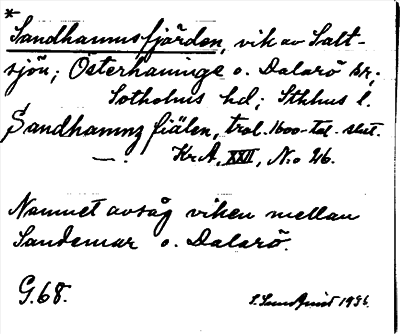 *
Sandhamnsfjärden, vik av Salt-
sjön; Österhaninge o. Dalarö kr;
Sotholms hd; Sthlms l.
Sandhamnz fiälen, trol. 1600-tal. slut.
—. Kr.A, XXII, N:o 26.
Namnet avsåg viken mellan
Sandemar o. Dalarö.
G.68. S. Sundquist 1936.